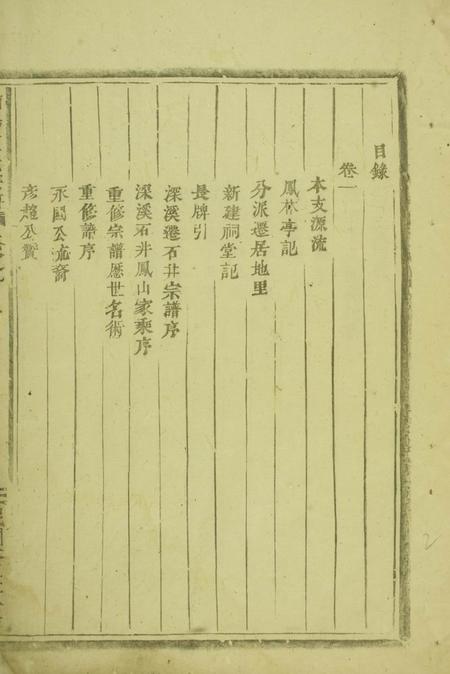 目錄
卷一
本支源流
鳳林亭記
分派遷居地里
新建祠堂記
長牌引
深溪遷石井宗譜序
深溪石井鳳山家乘序
重修宗譜歷世名術
重修譜序
永國公流裔
彥超公贊
2